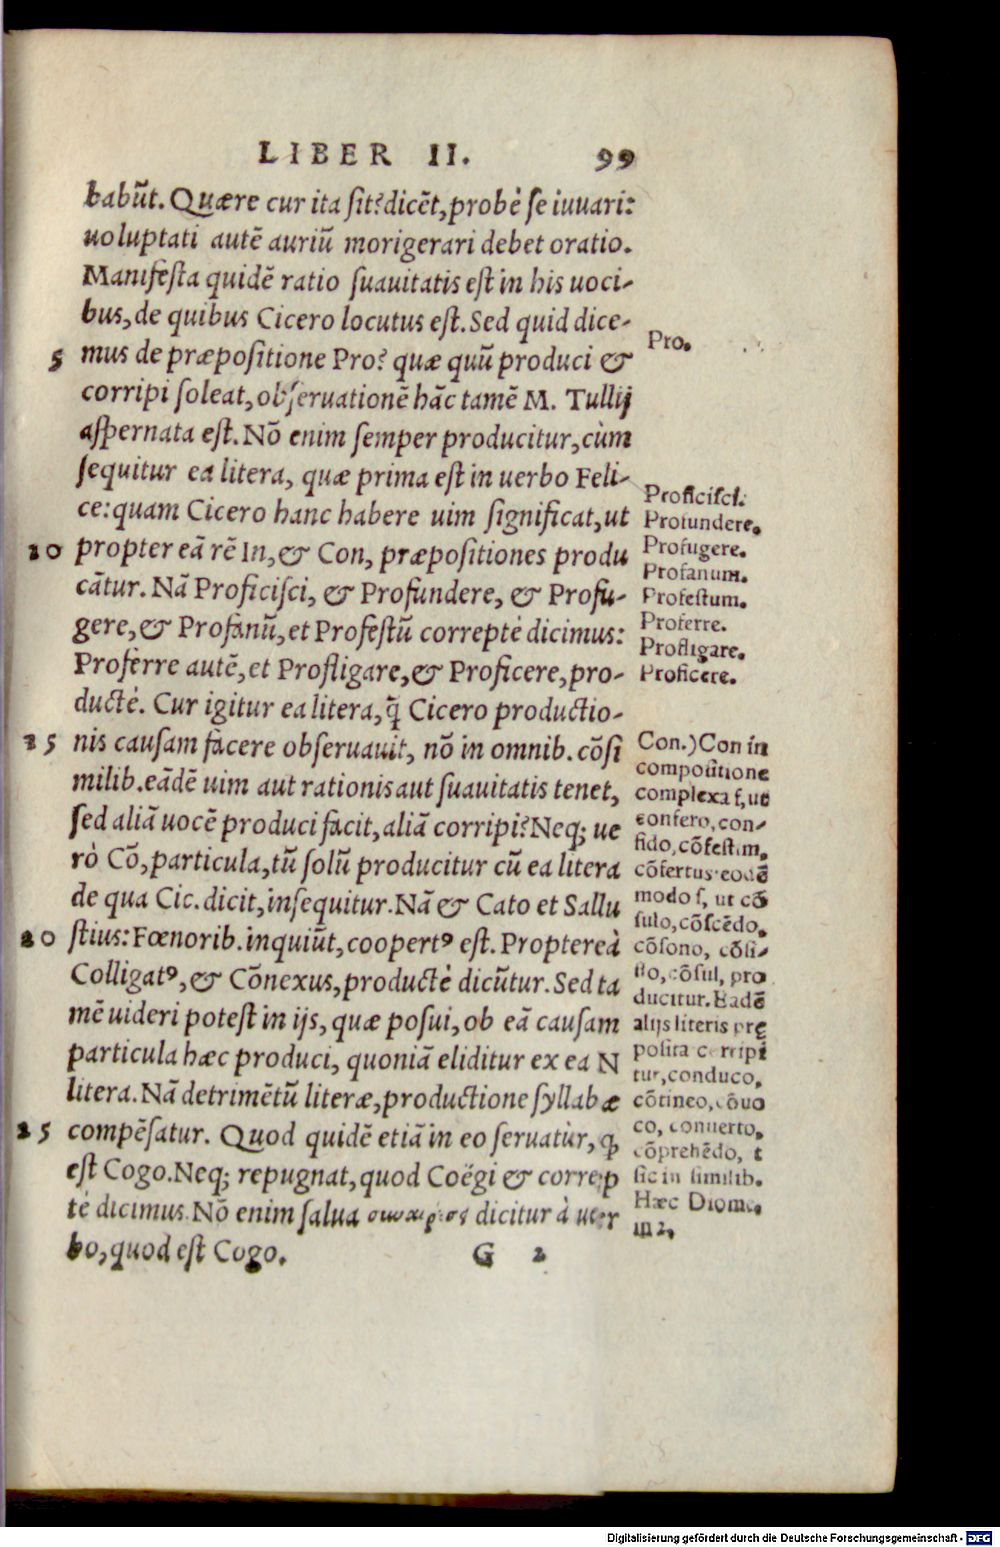 LIBER II. 99
babũt. Quære cur ita sit? dicẽt, probè se iuuari:
uoluptati autẽ auriũ morigerari debet oratio.
Manifesta quidẽ ratio suauitatis est in his uoci-
bus, de quibus Cicero locutus est. Sed quid dice-
5 mus de præpositione Pro? quæ quũ produci &
corripi soleat, obseruationẽ hãc tamẽ M. Tullij
aspernata est. Nõ enim semper producitur, cùm
sequitur ea litera, quæ prima est in uerbo Feli-
ce: quam Cicero hanc habere uim significat, ut
10 propter eã rẽ In, & Con, præpositiones produ
cãtur. Nã Proficisci, & Profundere, & Profu-
gere, & Profanũ, et Profestũ correptè dicimus:
Proferre autẽ, et Profligare, & Proficere, pro-
ductè. Cur igitur ea litera, q̃ Cicero productio-
15 nis causam facere obseruauit, nõ in omnib. cõsi
milib. eãdẽ uim aut rationis aut suauitatis tenet,
sed aliã uocẽ produci facit, aliã corripi? Neq; ue
rò Cõ, particula, tũ solũ producitur cũ ea litera
de qua Cic. dicit, insequitur. Nã & Cato et Sallu
20 stius: Fœnorib. inquiũt, coopertꝰ est. Propterеà
Colligatꝰ, & Cõnexus, productè dicũtur. Sed ta
mẽ uideri potest in ijs, quæ posui, ob eã causam
particula hæc produci, quoniã eliditur ex ea N
litera. Nã detrimẽtũ literæ, productione syllabæ
25 compẽsatur. Quod quidẽ etiã in eo seruatùr, ꝙ
est Cogo. Neq; repugnat, quod Coëgi & correp
tè dicimus. Nõ enim salua dicitur à uer
bo, quod est Cogo. G 2
Pro.
Proficisci.
Profundere.
Profugere.
Profanum.
Profestum.
Proferre.
Profligare.
Proficere.
Con.) Con in
compositione
complexa f, ut
confero, con-
fido, cõfestim,
cõfertus: eodẽ
modo s, ut cõ
sulo, cõscẽdo,
cõsono, cõsi-
sto, cõsul, pro
ducitur. Eadẽ
alijs literis præ
posita corripi
tur, conduco,
cõtineo, cõuo
co, conuerto,
cõprehẽdo, &
sic in similib.
Hæc Diome.
in 2.
Digitalisierung gefördert durch die Deutsche Forschungsgemeinschaft - DFG